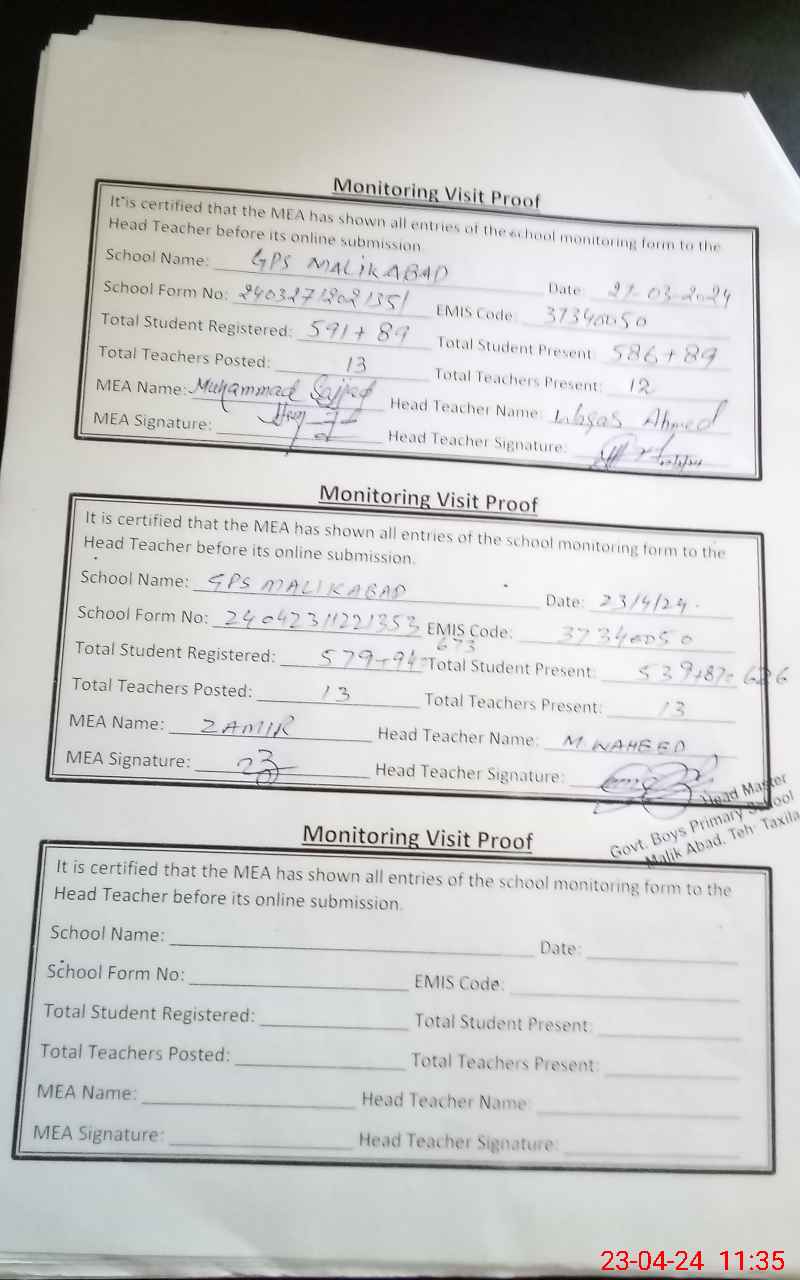 Monitoring Visit Proof
It is certified that the MEA has shown all entries of the school monitoring form to the
Head Teacher before its online submission.
School Name: GPS MALIKABAD Date: 27-03-2024
School Form No: 24032712021351 EMIS Code: 37340050
Total Student Registered: 591+89 Total Student Present: 586+89
Total Teachers Posted: 13 Total Teachers Present: 12
MEA Name: Muhammad Sajjad Head Teacher Name: Ahmed
MEA Signature: Head Teacher Signature:
Monitoring Visit Proof
It is certified that the MEA has shown all entries of the school monitoring form to the
Head Teacher before its online submission.
School Name: GPS MALIKABAD Date: 23/4/24.
School Form No: 24042311221353 EMIS Code: 37340050
Total Student Registered: 579+94=673 Total Student Present: 539+87=626
Total Teachers Posted: 13 Total Teachers Present: 13
MEA Name: ZAMIR Head Teacher Name: M WAHEED
MEA Signature: Head Teacher Signature:
Head Master
Govt. Boys Primary School
Malik Abad. Teh: Taxila
Monitoring Visit Proof
It is certified that the MEA has shown all entries of the school monitoring form to the
Head Teacher before its online submission.
School Name: Date:
School Form No: EMIS Code:
Total Student Registered: Total Student Present:
Total Teachers Posted: Total Teachers Present:
MEA Name: Head Teacher Name:
MEA Signature: Head Teacher Signature:
23-04-24 11:35